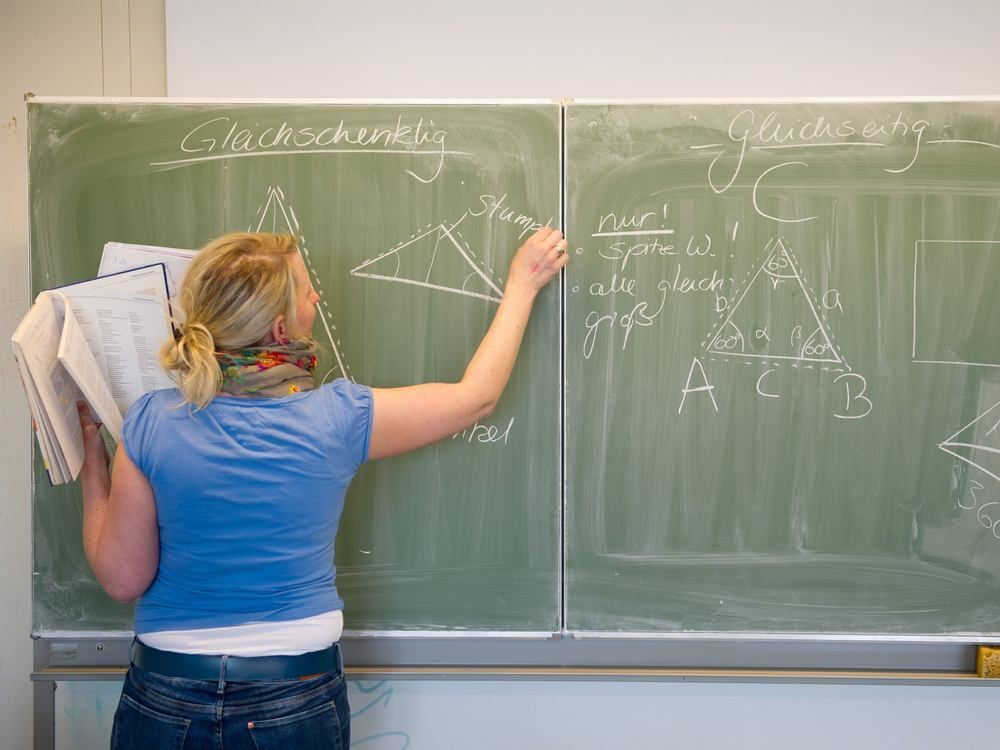 Gleichschenklig
Stump
Gleichseitig
C
nur!
• spitze W. !
• alle gleich
groß
60°
γ
b a
60° α β 60°
A c B